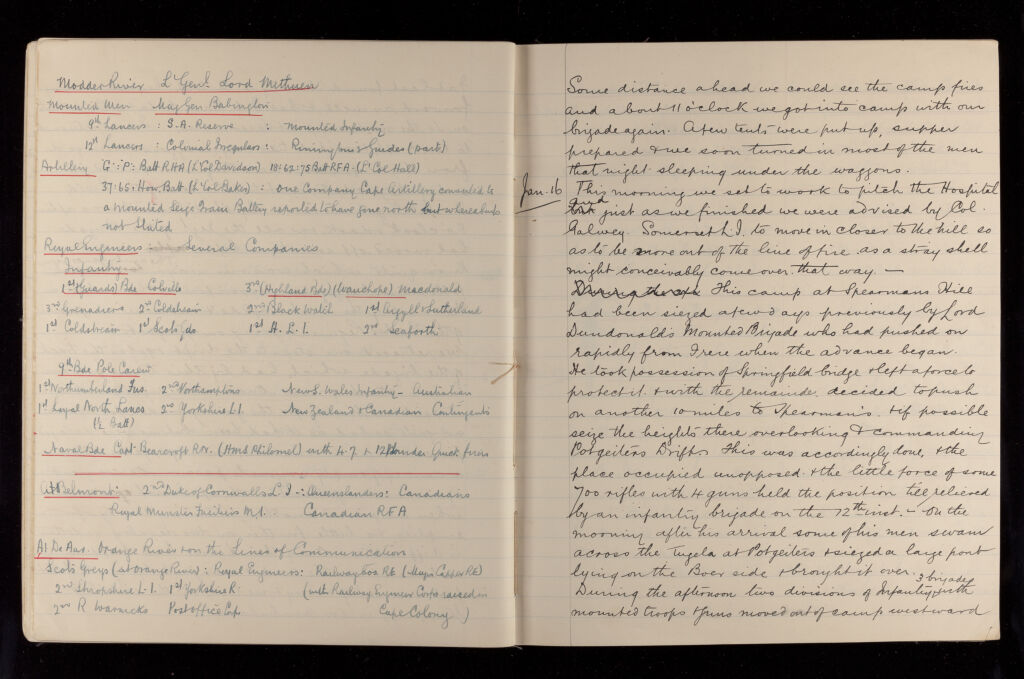 Modder River Lt Genl. Lord Methuen
Mounted Men Maj Gen Babington
9th Lancers : S.A. Reserve : Mounted Infantry
12th Lancers : Colonial Irregulars : Rimington's Guides (part)
Artillery G : P : Batt RHA (Lt Col Davidson) 18 : 62 : 75 Batt RFA - (Lt Col Hall)
37 : 65 : How. Batt (Lt Col Baker) : one Company Cape Artillery converted to
a mounted Seige Train Battery reported to have gone north but whereabouts
not stated
Royal Engineers : Several Companies
Infantry :-
1st (Guards) Bde Colvile 3rd (Highland Bde) (Wauchope) Macdonald
3rd Grenadiers 2nd Coldstream 2nd Black Watch 1st Argyll & Sutherland
1st Coldstream 1st Scots do 1st H. L. I. 2nd Seaforth
9th Bde Pole Carew
1st Northumberland Fus. 2nd Northamptons New S. Wales Infantry - Australian
1st Loyal North Lancs 2nd Yorkshire L.I. New Zealand & Canadian Contingents
(½ Batt)
Naval Bde Capt. Bearcroft R.N. (HMS Philomel) with 4.7 & 12 Pounder Quick firers
At Belmont : 2nd Duke of Cornwalls L. I - : Queenslanders : Canadians
Royal Munster Fusiliers M.I. : Canadian RFA
At De Aar. Orange River & on the Lines of Communication
Scots Greys (at Orange River : Royal Engineers : Railway Cos RE (Major Capper RE)
2nd Shropshire L. I. 1st Yorkshire R. (with Railway Engineer Corps raised in
2nd R Warwicks Post office Corps Cape Colony)
Some distance ahead we could see the camp fires
and about 11 o'clock we got into camp with our
brigade again. A few tents were put up, supper
prepared & we soon turned in most of the men
that night sleeping under the waggons.
Jan. 16 This morning we set to work to pitch the Hospital
and
but just as we finished we were advised by Col.
Galwey. Somerset L.I. to move in closer to the hill so
as to be more out of the line of fire as a stray shell
might conceivably come over that way. —
During the This camp at Spearmans Hill
had been siezed a few days previously by Lord
Dundonald's Mounted Brigade who had pushed on
rapidly from Frere when the advance began.
He took possession of Springfield bridge & left a force to
protect it & with the remainde, decided to push
on another 10 miles to Spearman's. & if possible
seize the heights there overlooking & commanding
Potgeiters Drift. This was accordingly done, & the
place occupied unopposed & the little force of some
700 rifles with 4 guns held the position till relieved
by an infantry brigade on the 12th inst. - On the
morning after his arrival some of his men swam
across the Tugela at Potgeiters & siezed a large pont
lying on the Boer side & brought it over.
3 brigades
During the afternoon two divisions of Infantry, with
mounted troops & guns moved out of camp westward